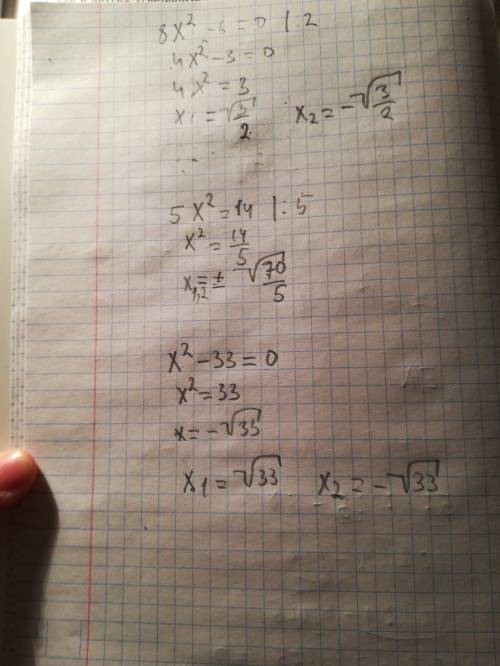 8x² - 6 = 0 |:2
4x² - 3 = 0
4x² = 3
x₁ = √3/2 x₂ = -√3/2
5x² = 14 |:5
x² = 14/5
x₁,₂ = ± √70/5
x² - 33 = 0
x² = 33
x = -√33
x₁ = √33 x₂ = -√33